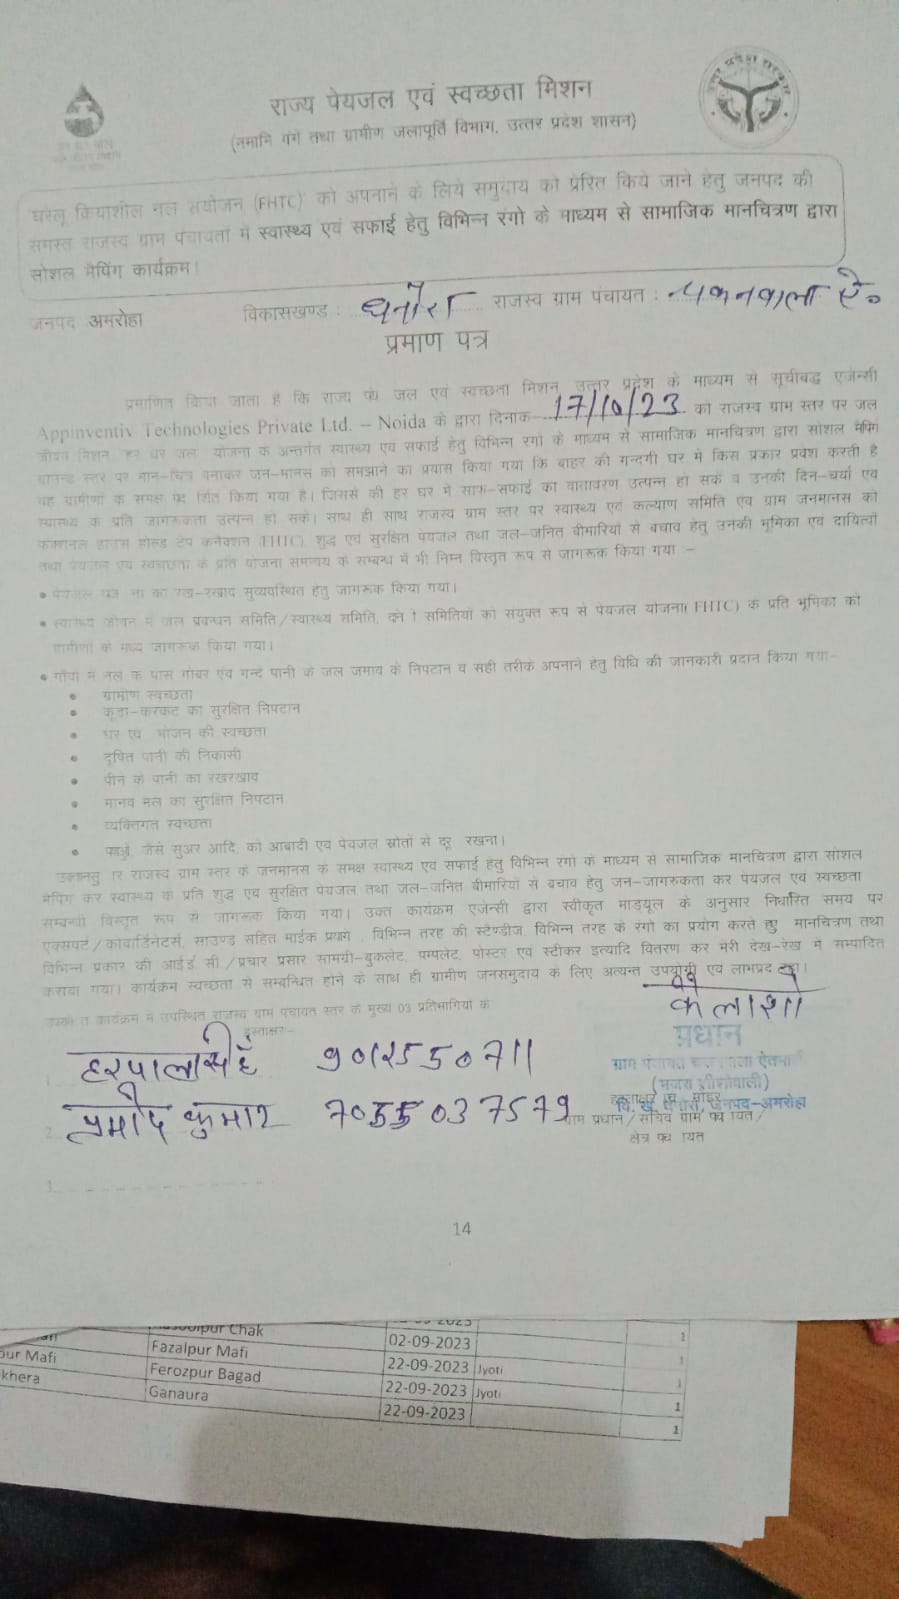 राज्य पेयजल एवं स्वच्छता मिशन
(नमामि गंगे तथा ग्रामीण जलापूर्ति विभाग, उत्तर प्रदेश शासन)
घरेलू कियाशील नल संयोजन (FHTC) को अपनाने के लिये समुदाय को प्रेरित किये जाने हेतु जनपद की
समस्त राजस्व ग्राम पंचायतों में स्वास्थ्य एवं सफाई हेतु विभिन्न रंगो के माध्यम से सामाजिक मानचित्रण द्वारा
सोशल मैपिंग कार्यक्रम।
जनपद अमरोहा विकासखण्ड : धनौरा राजस्व ग्राम पंचायत :
प्रमाण पत्र
प्रमाणित किया जाता है कि राज्य जल एवं स्वच्छता मिशन, उत्तर प्रदेश के माध्यम से सूचीबद्ध एजेन्सी
Appinventiv Technologies Private Ltd. – Noida के द्वारा दिनांक 17/10/23 को राजस्व ग्राम स्तर पर जल
जीवन मिशन हर घर जल योजना के अन्तर्गत स्वास्थ्य एवं सफाई हेतु विभिन्न रंगों के माध्यम से सामाजिक मानचित्रण द्वारा सोशल मैपिंग
ग्राउन्ड स्तर पर मान-चित्र बनाकर जन-मानस को समझाने का प्रयास किया गया कि बाहर की गन्दगी घर में किस प्रकार प्रवेश करती है
यह ग्रामीणों के समक्ष किया गया है। जिससे की हर घर में साफ-सफाई का वातावरण उत्पन्न हो सके व उनकी दिन-चर्या एवं
स्वास्थ्य के प्रति जागरूकता उत्पन्न हो सके। साथ ही साथ राजस्व ग्राम स्तर पर स्वास्थ्य एवं कल्याण समिति एवं ग्राम जनमानस को
होल्ड टेप कनेक्शन (FHTC) शुद्ध एवं सुरक्षित पेयजल तथा जल-जनित बीमारियों से बचाव हेतु उनकी भूमिका एवं दायित्वों
तथा पेयजल एवं स्वच्छता के प्रति योजना समन्वय के सम्बन्ध में भी निम्न विस्तृत रूप से जागरूक किया गया –
• पेयजल का रख-रखाव सुव्यवस्थित हेतु जागरूक किया गया।
• जीवन में जल प्रबन्धन समिति/स्वास्थ्य समिति, समितियों को संयुक्त रूप से पेयजल योजना( FHTC) के प्रति भूमिका को
ग्रामीणों के मध्य जागरूक किया गया।
• गाँवों में नल के पास गोबर एवं गन्दे पानी के जल जमाव के निपटान व सही तरीके अपनाने हेतु विधि की जानकारी प्रदान किया गया–
• ग्रामीण स्वच्छता
• कूडा-करकट का सुरक्षित निपटान
• घर एवं भोजन की स्वच्छता
• दूषित पानी की निकासी
• पीने के पानी का रखरखाव
• मानव मल का सुरक्षित निपटान
• व्यक्तिगत स्वच्छता
• जैसे सुअर आदि, को आबादी एवं पेयजल स्रोतों से रखना।
राजस्व ग्राम स्तर के जनमानस के समक्ष स्वास्थ्य एवं सफाई हेतु विभिन्न रंगों के माध्यम से सामाजिक मानचित्रण द्वारा सोशल
मैपिंग कर स्वास्थ्य के प्रति शुद्ध एवं सुरक्षित पेयजल तथा जल-जनित बीमारियों से बचाव हेतु जन-जागरुकता कर पेयजल एवं स्वच्छता
सम्बन्धी विस्तृत रूप से जागरूक किया गया। उक्त कार्यक्रम एजेन्सी द्वारा स्वीकृत माड्यूल के अनुसार निर्धारित समय पर
एक्सपर्ट/कोवार्डिनेटर्स, साउण्ड सहित माईक विभिन्न तरह की स्टैण्डीज, विभिन्न तरह के रंगो का प्रयोग करते मानचित्रण तथा
विभिन्न प्रकार की आई ई सी/प्रचार प्रसार सामग्री-बुकलेट, पम्पलेट, पोस्टर एवं स्टीकर इत्यादि वितरण कर मेरी देख-रेख में सम्पादित
कराया गया। कार्यक्रम स्वच्छता से सम्बन्धित होने के साथ ही ग्रामीण जनसमुदाय के लिए अत्यन्त उपयोगी एवं लाभप्रद रहा।
कार्यक्रम में उपस्थित राजस्व ग्राम पंचायत स्तर के मुख्य 03 प्रतिभागियों के
हस्ताक्षर–
कैलाशो
प्रधान
1. हरपालसिंह
ग्राम पंचायत
2. प्रमोद कुमार 7055037579
जनपद-अमरोहा
ग्राम प्रधान/सचिव ग्राम
क्षेत्र
3.
14
Chak
Fazalpur Mafi 02-09-2023 1
pur Mafi Ferozpur Bagad 22-09-2023 Jyoti
khera Ganaura 22-09-2023 Jyoti 1
22-09-2023 1